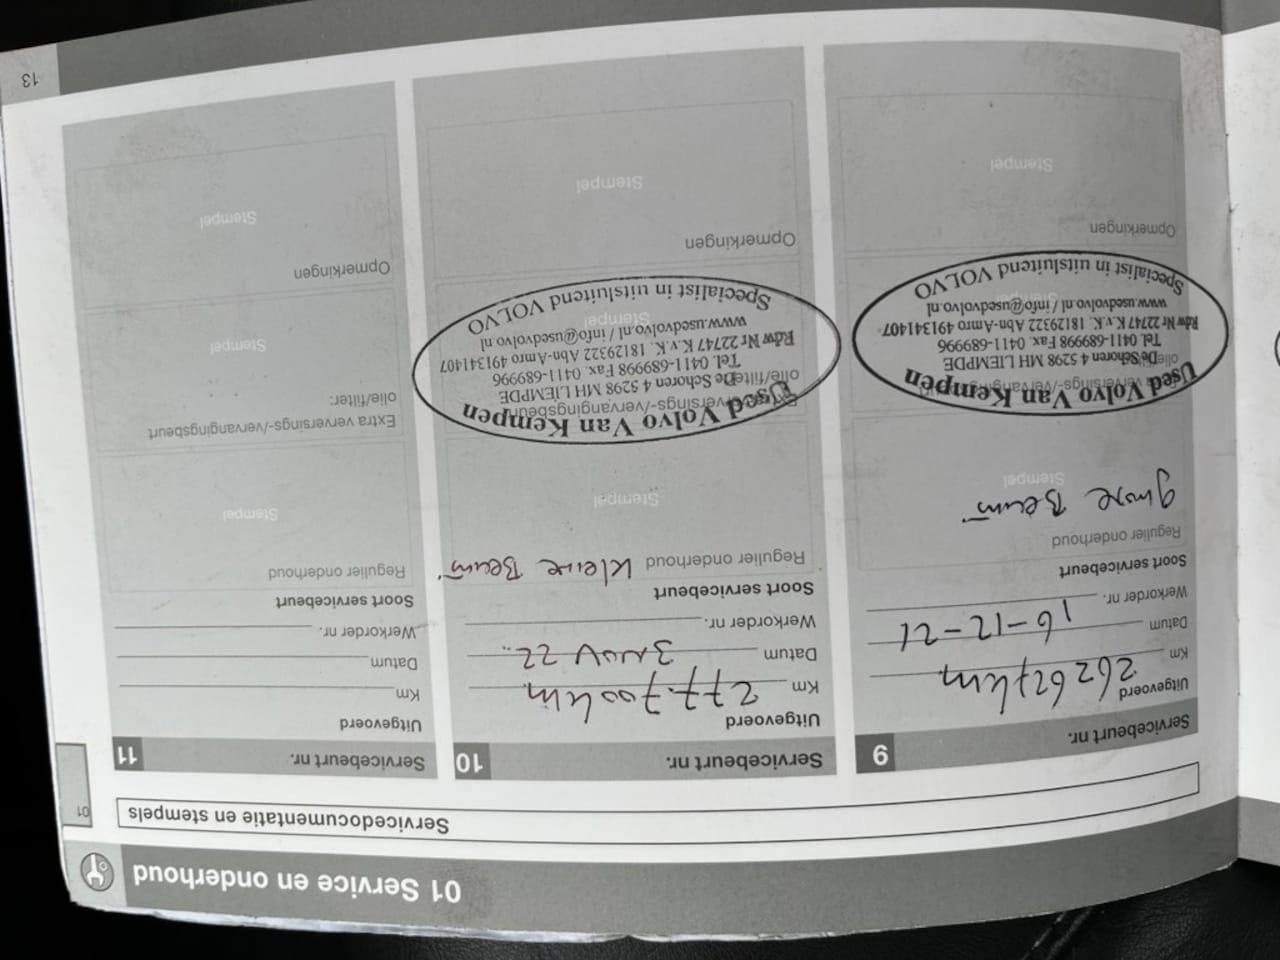 01 Service en onderhoud
Servicedocumentatie en stempels
01
Servicebeurt nr. 9
Uitgevoerd
Km 262627km
Datum 16-12-21
Werkorder nr.
Soort servicebeurt
Regulier onderhoud
grote Beurt
Stempel
verversings-/vervanging
olie
Used Volvo Van Kempen
De Schoren 4 5298 MH LIEMPDE
Tel. 0411-689998 Fax. 0411-689996
Rdw Nr 22747 K.v.K. 18129322 Abn-Amro 491341407
www.usedvolvo.nl / info@usedvolvo.nl
Specialist in uitsluitend VOLVO
Opmerkingen
Stempel
Servicebeurt nr. 10
Uitgevoerd
Km 277.700km
Datum 3 NOV 22
Werkorder nr.
Soort servicebeurt
Regulier onderhoud kleine Beurt
Stempel
verversings-/vervangingsbeurt
olie/filte
Used Volvo Van Kempen
De Schoren 4 5298 MH LIEMPDE
Tel. 0411-689998 Fax. 0411-689996
Rdw Nr 22747 K.v.K. 18129322 Abn-Amro 491341407
www.usedvolvo.nl / info@usedvolvo.nl
Stempel
Specialist in uitsluitend VOLVO
Opmerkingen
Stempel
Servicebeurt nr. 11
Uitgevoerd
Km
Datum
Werkorder nr.
Soort servicebeurt
Regulier onderhoud
Stempel
Extra verversings-/vervangingsbeurt
olie/filter:
Stempel
Opmerkingen
Stempel
13